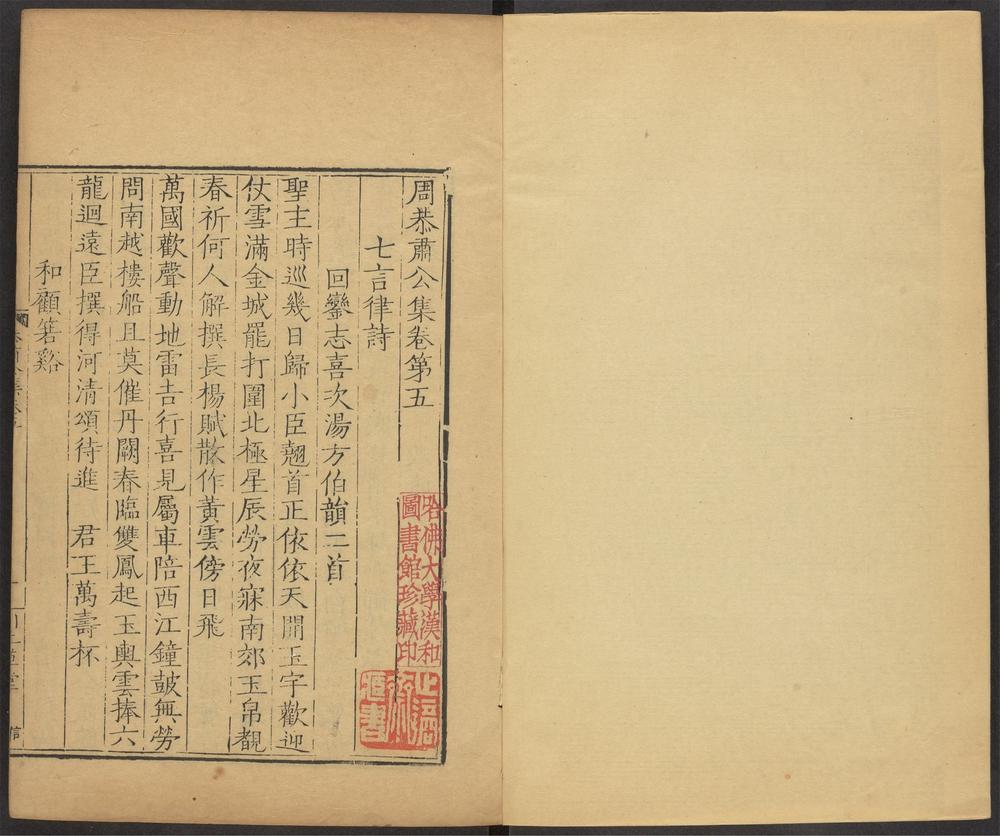 周恭肅公集卷第五
七言律詩
回鑾志喜次湯方伯韻二首
聖主時巡幾日歸小臣翹首正依依天開玉宇歡迎
仗雪滿金城罷打圍北極星辰勞夜寐南郊玉帛覩
春祈何人解撰長楊賦散作黃雲傍日飛
萬國歡聲動地雷吉行喜見屬車陪西江鐘皷無勞
問南越樓船且莫催丹闕春臨雙鳳起玉輿雲捧六
龍迴遠臣撰得河清頌待進 君王萬壽杯
和顧箬谿
哈佛大學漢和
圖書館珍藏印